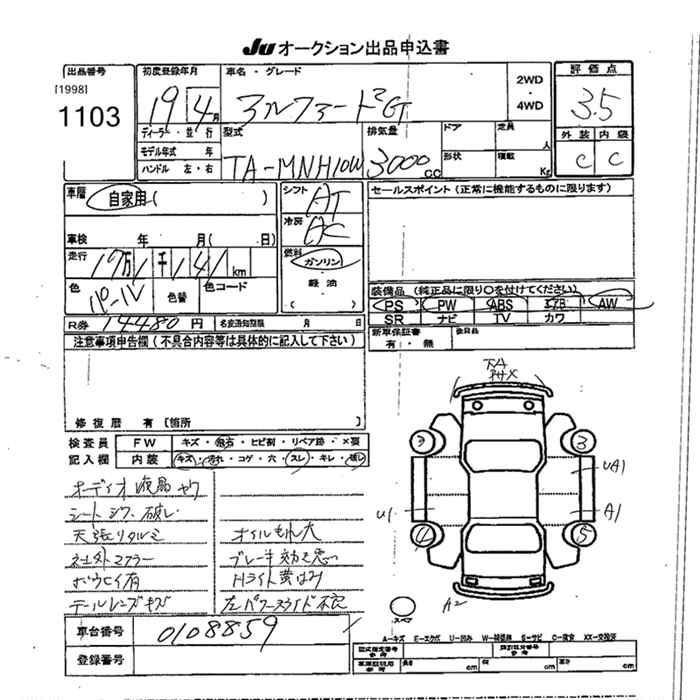 JU オークション出品申込書
出品番号 初度登録年月 車名・グレード 2WD・4WD 評価点
[1998]
1103
19 4月 アルファード G 3.5
ディーラー・並行 型式 排気量 ドア 定員 人 外装 内装
モデル年式 年
ハンドル 左・右 TA-MNH10W 3000cc 形状 積載 Kg C C
車歴 自家用( ) シフト AT セールスポイント(正常に機能するものに限ります)
車検 年 月( 日) 冷房 AC
走行 10万 1千 141 km 燃料 ガソリン
色 パール 色替 色コード ・軽油・ ( ) 装備品(純正品に限り○を付けてください)
PS PW ABS エアB AW
SR ナビ TV カワ
R券 14480円 名変通知期限 月 日 新車保証書 有・無 後日品
注意事項申告欄(不具合内容等は具体的に記入して下さい)
下人
修復歴 有[箇所 ]
検査員 FW キズ・飛石・ヒビ割・リペア跡・×要
記入欄 内装 キズ・汚れ・コゲ・穴・スレ・キレ・破レ
3 3
UA1
U1 A1
4 5
A2
オーディオ液晶ヤケ
シートシワ、破レ
天張リタルミ オイルもれ大
社外マフラー ブレーキ効き悪い
ボウヒイ有 Hライト黄ばみ
テールレンズキズ 左パワースライド不良
スペア
車台番号 0108859
登録番号
A-キズ E-エクボ U-凹み W-補修跡 S-サビ C-腐食 XX-交換済
型式指定番号 参考 類別区分番号 参考
車庫証明用 参考 長さ cm 幅 cm 高さ cm